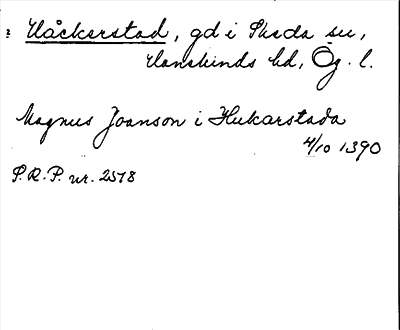 ? Håckerstad, gd i Skeda sn,
Hanekinds hd, Ög. l.
Magnus Joanson i Hukarstada
4/10 1390
P.R.P. nr. 2578